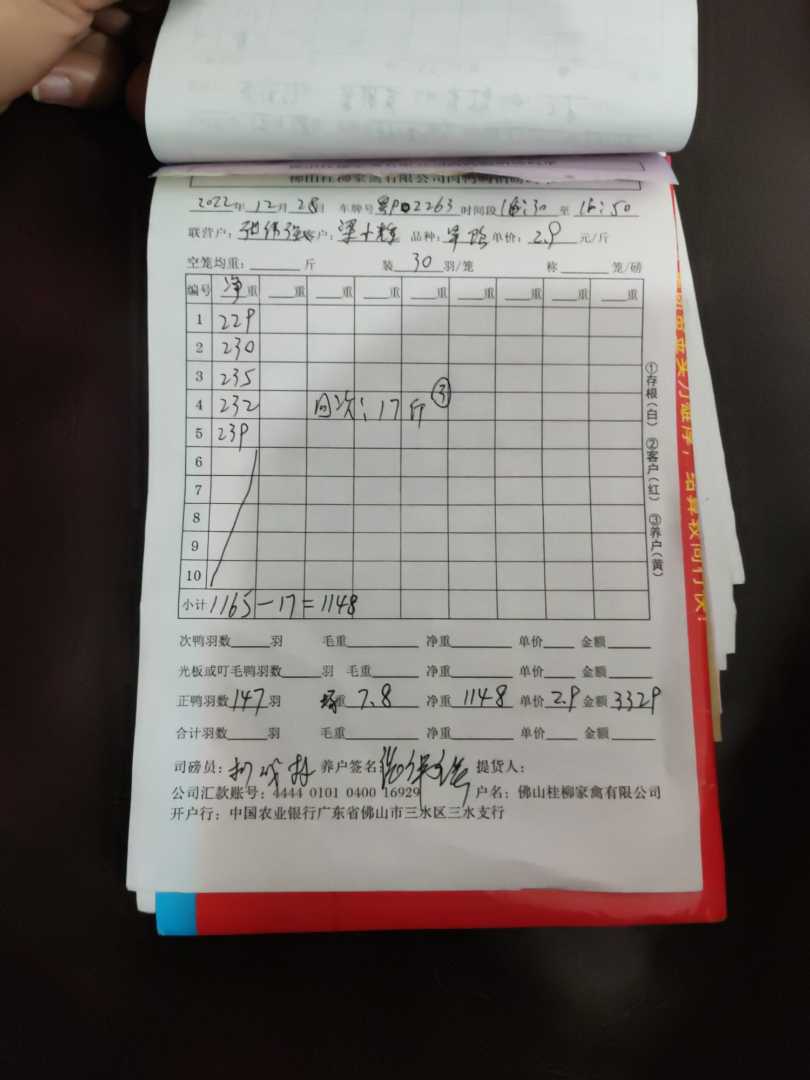 2022年12月28日 车牌号粤P02263时间段16:30至16:50
联营户:张伟强客户:梁十辉 品种: 单价:2.9元/斤
空笼均重:斤 装30羽/笼 称笼/磅
编号 净重 重 重 重 重 重 重 重 重
1 229
2 230
3 235
4 232 回次:17斤 ③
5 239
6
7
8
9
10
小计 1165-17=1148
次鸭羽数羽 毛重 净重 单价 金额
光板或叮毛鸭羽数羽 毛重 净重 单价 金额
正鸭羽数147羽 均重7.8 净重1148 单价2.9 金额3329
合计羽数羽 毛重 净重 单价 金额
司磅员: 养户签名 提货人:
公司汇款账号:4444 0101 0400 16929 户名:佛山桂柳家禽有限公司
开户行:中国农业银行广东省佛山市三水区三水支行
①存根(白) ②客户(红) ③养户(黄)